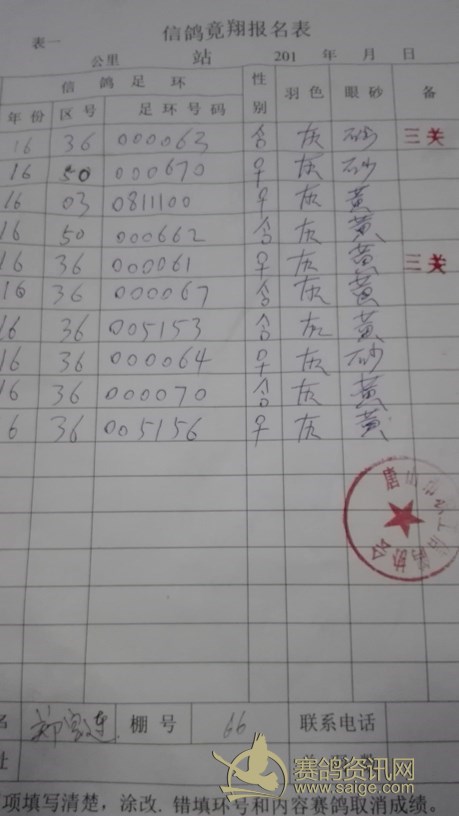 信鸽竟翔报名表
表一
公里 站 201 年 月 日
信鸽足环 性别 羽色 眼砂 备
年份 区号 足环号码
16 36 000063 灰 砂 三关
16 50 000670 灰 砂
16 03 0811100 灰 黄
16 50 000662 灰 黄
16 36 000061 灰 黄 三关
16 36 000067 灰 黄
16 36 005153 灰 黄
16 36 000064 灰 砂
16 36 000070 灰 黄
6 36 005156 灰 黄
唐
鸽协会
名 棚号 66 联系电话
址
赛鸽资讯网
www.saige.com
项填写清楚，涂改.错填环号和内容赛鸽取消成绩。